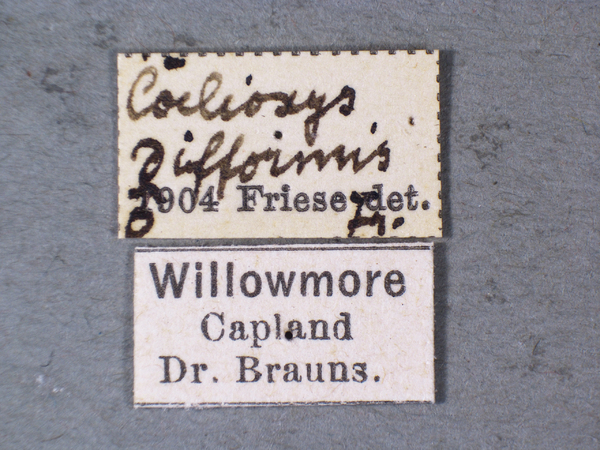 Coelioxys
difformis
1904 Friese det.
Fr.
Willowmore
Capland
Dr. Brauns.